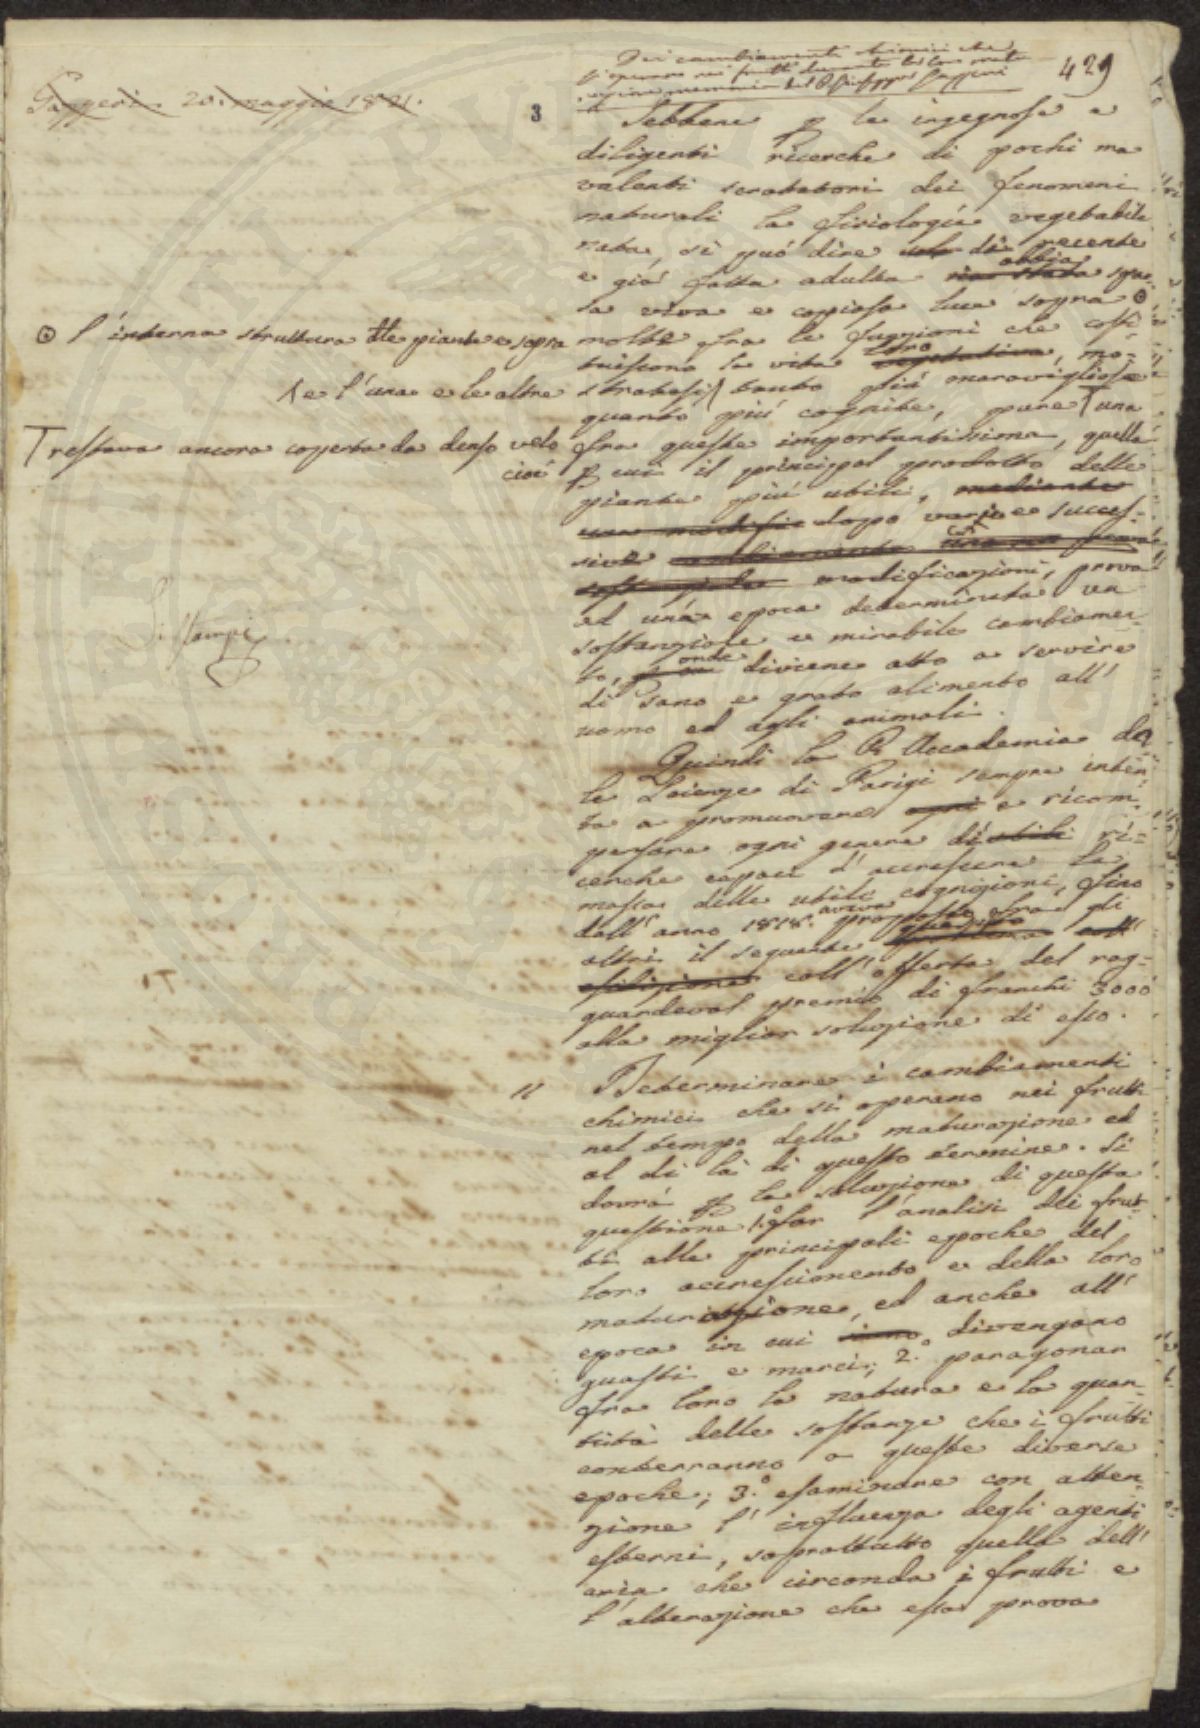 429
Dei cambiamenti chimici che
si operano nei frutti durante la loro matu
razione memoria del P. Giuseppe Gazzeri
Gazzeri. 20. maggio 1821.
3
Sebbene p le ingegnose e
diligenti ricerche di pochi ma
valenti scrutatori dei fenomeni
naturali la fisiologia vegetabile
nata, si può dire di recente
e già fatta adulta abbia spar-
sa viva e copiosa luce sopra ⊙
⊙ l'interna struttura delle piante e sopra
molte fra le funzioni che costi-
tuiscono la vita loro vegetativa, mo-
\ e l'una e le altre
stratesi \ tanto più maravigliose
quanto più cognite, pure T una
T restava ancora coperta da denso velo
cioè
fra queste importantissima, quella
p cui il principal prodotto delle
piante più utili, mediante
una modific dopo varie e succes-
sive cambiamento
modificazioni, prova
ad una epoca determinata un
sostanziale e mirabile cambiamen-
to, onde diviene atto a servire
di sano e grato alimento all'
uomo ed agli animali.
Si stampi
Quindi la R. Accademia del
le Scienze di Parigi sempre inten
ta a promuovere ogni e ricom
pensare ogni genere di utili ri-
cerche capaci d'accrescere la
massa delle utili cognizioni, fino
dall'anno 1818. aveva proposto fra gli
altri il seguente quesito
coll'offerta del rag-
guardevol premio di franchi 3000
alla miglior soluzione di esso.
" Determinare i cambiamenti
chimici che si operano nei frutti
nel tempo della maturazione ed
al di là di questo termine. Si
dovrà p la soluzione di questa
questione 1.° far l'analisi dei frut-
ti alle principali epoche del
loro accrescimento e della loro
maturazione, ed anche all'
epoca in cui siano divengono
guasti e marci; 2.° paragonar
fra loro la natura e la quan-
tità delle sostanze che i frutti
conterranno a queste diverse
epoche; 3.° esaminare con atten-
zione l'influenza degli agenti
esterni, soprattutto quella dell'
aria che circonda i frutti e
l'alterazione che essa prova